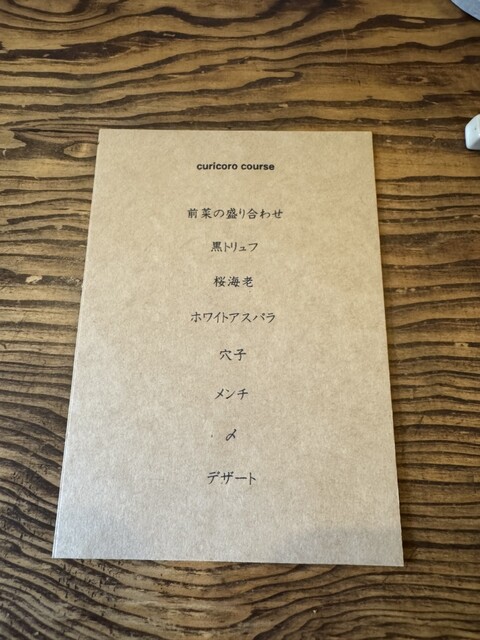 curicoro course
前菜の盛り合わせ
黒トリュフ
桜海老
ホワイトアスパラ
穴子
メンチ
〆
デザート